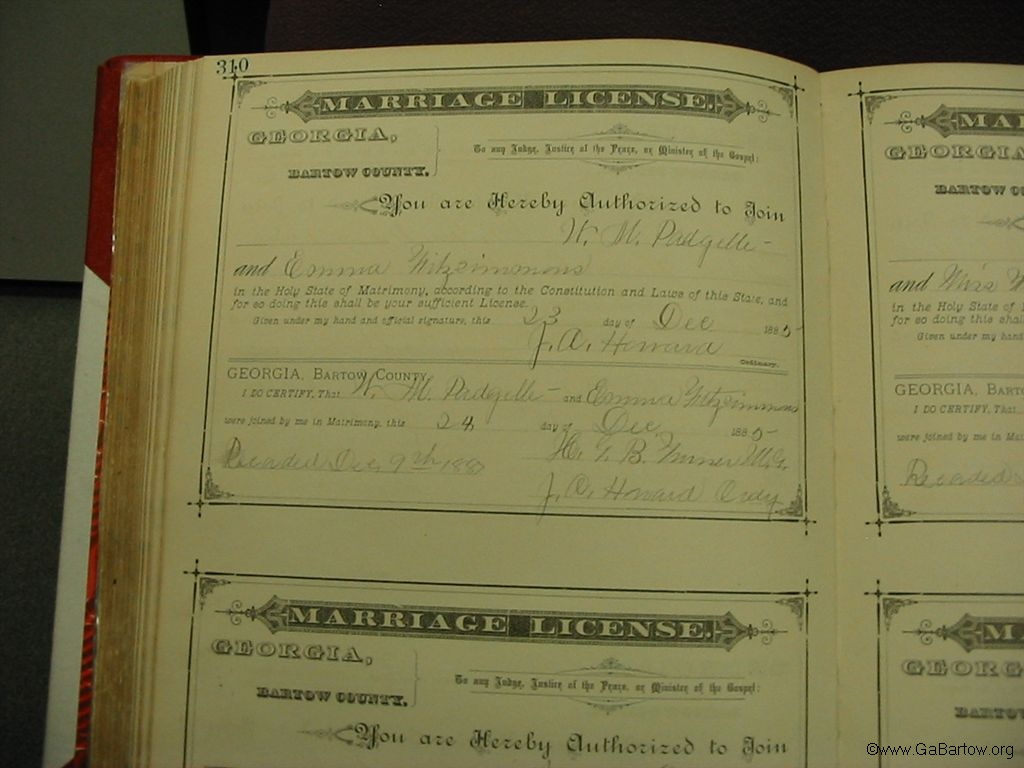 310
MARRIAGE LICENSE.
GEORGIA,
BARTOW COUNTY.
To any Judge, Justice of the Peace, or Minister of the Gospel:
You are Hereby Authorized to Join
W. M. Padgette
and Emma Fitzsimmons
in the Holy State of Matrimony, according to the Constitution and Laws of this State, and
for so doing this shall be your sufficient License.
Given under my hand and official signature, this 23 day of Dec 1885
J. A. Howard
Ordinary.
GEORGIA, BARTOW COUNTY.
I DO CERTIFY, That W. M. Padgette and Emma Fitzsimmons
were joined by me in Matrimony, this 24 day of Dec. 1885
Recorded Dec 9th 188 H. G. B. M.G.
J. A. Howard Ordy
MARRIAGE LICENSE.
GEORGIA,
BARTOW COUNTY.
To any Judge, Justice of the Peace, or Minister of the Gospel:
You are Hereby Authorized to Join
MA
GEORGIA
BARTOW CO
and Miss
in the Holy State of
for so doing this shall
Given under my hand
GEORGIA, BART
I DO CERTIFY, That
were joined by me in Mat
Recorded
M
GEORG
BARTO
©www.GaBartow.org